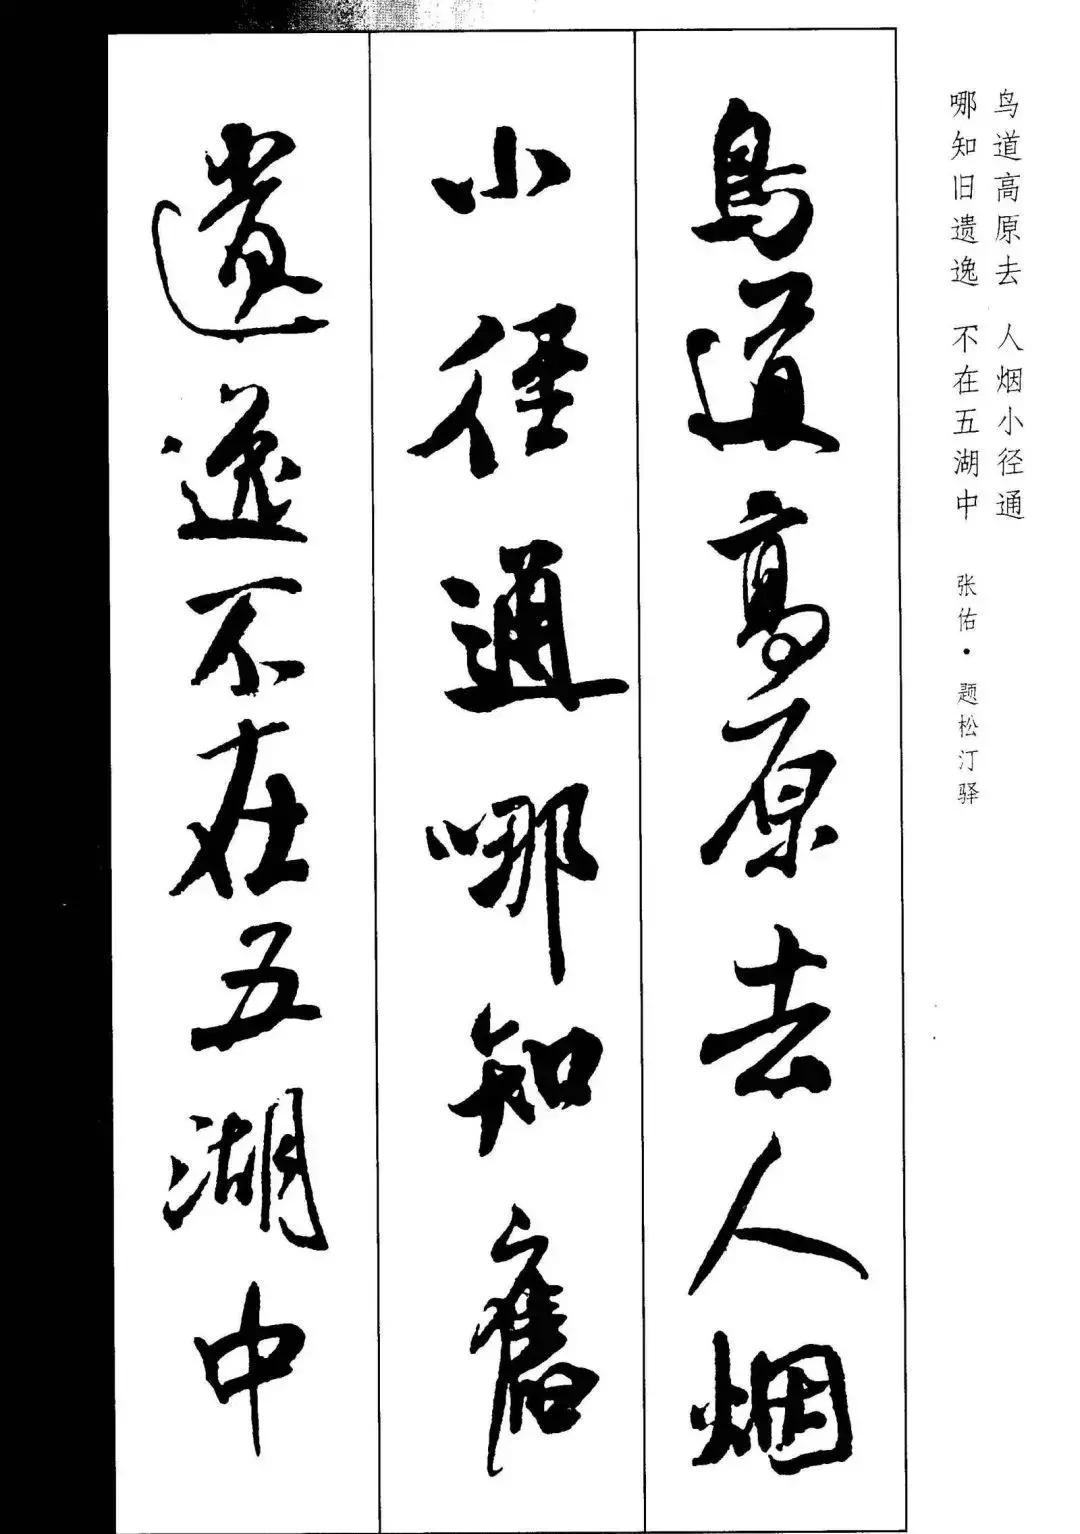 鸟道高原去 人烟小径通
哪知旧遗逸 不在五湖中 张佑·题松汀驿
鳥道高原去人烟
小径通哪知舊
遺逸不在五湖中